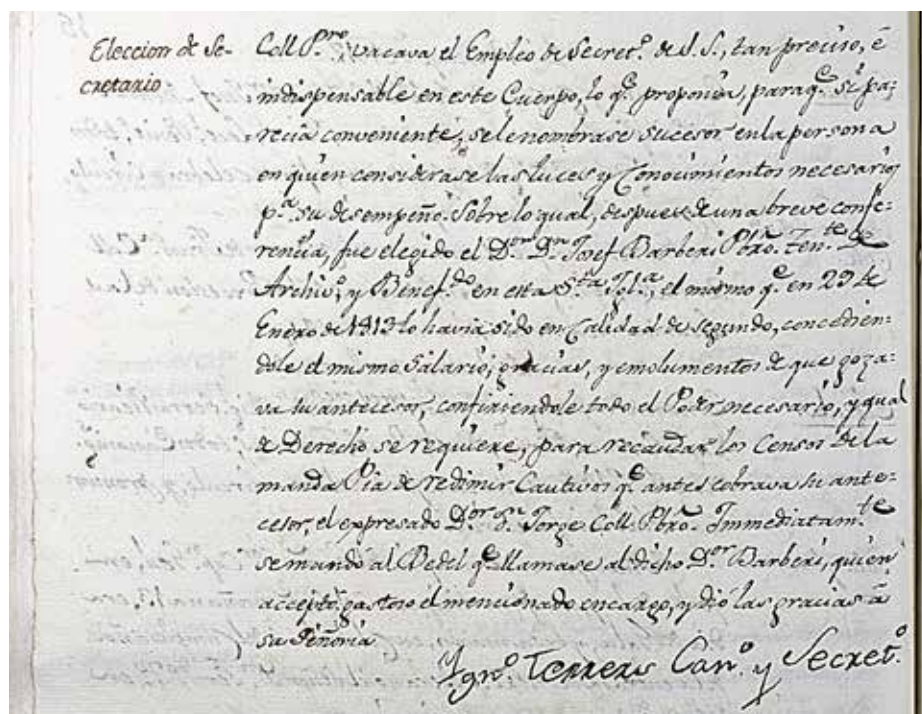 Eleccion de Se-
cretario
Coll P.ro, vacava el Empleo de Secret.o de S.S., tan preciso, é
indispensable en este Cuerpo, lo q.e proponia, para q.e si pa-
recia conveniente, se le nombrase sucesor en la persona
en quien considerase las luces y Conocimientos necesarios
p.a su desempeño. Sobre lo qual, despues de una breve confe-
rencia, fue elegido el D.or D.n Josef Barberi Pbro. Ten.te de
Archiv.o y Benef.do en esta S.ta Igl.a, el mismo q.e en 29 de
Enero de 1813 lo havia sido en Calidad de segundo, concedien-
dole el mismo Salario, gracias, y emolumentos de que goza-
va su antecesor, confiriendole todo el Poder necesario, y qual
de Derecho se requiere, para recaudar los Censos de la
manda Pia de redimir Cautivos q.e antes cobrava su ante-
cesor, el expresado D.or D.n Jorge Coll Pbro. Immediatam.te
se mandó al Bedel q.e llamase al dicho D.or Barberi, quien
acceptó gustoso el mencionado encargo, y dió las gracias á
su Señoria
Ign.o Terrers Can.o y Secret.o